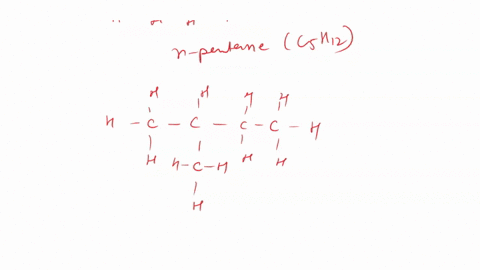 n-pentane (C5H12)
H H H H
H - C - C - C - C - H
H H-C-H H H
H